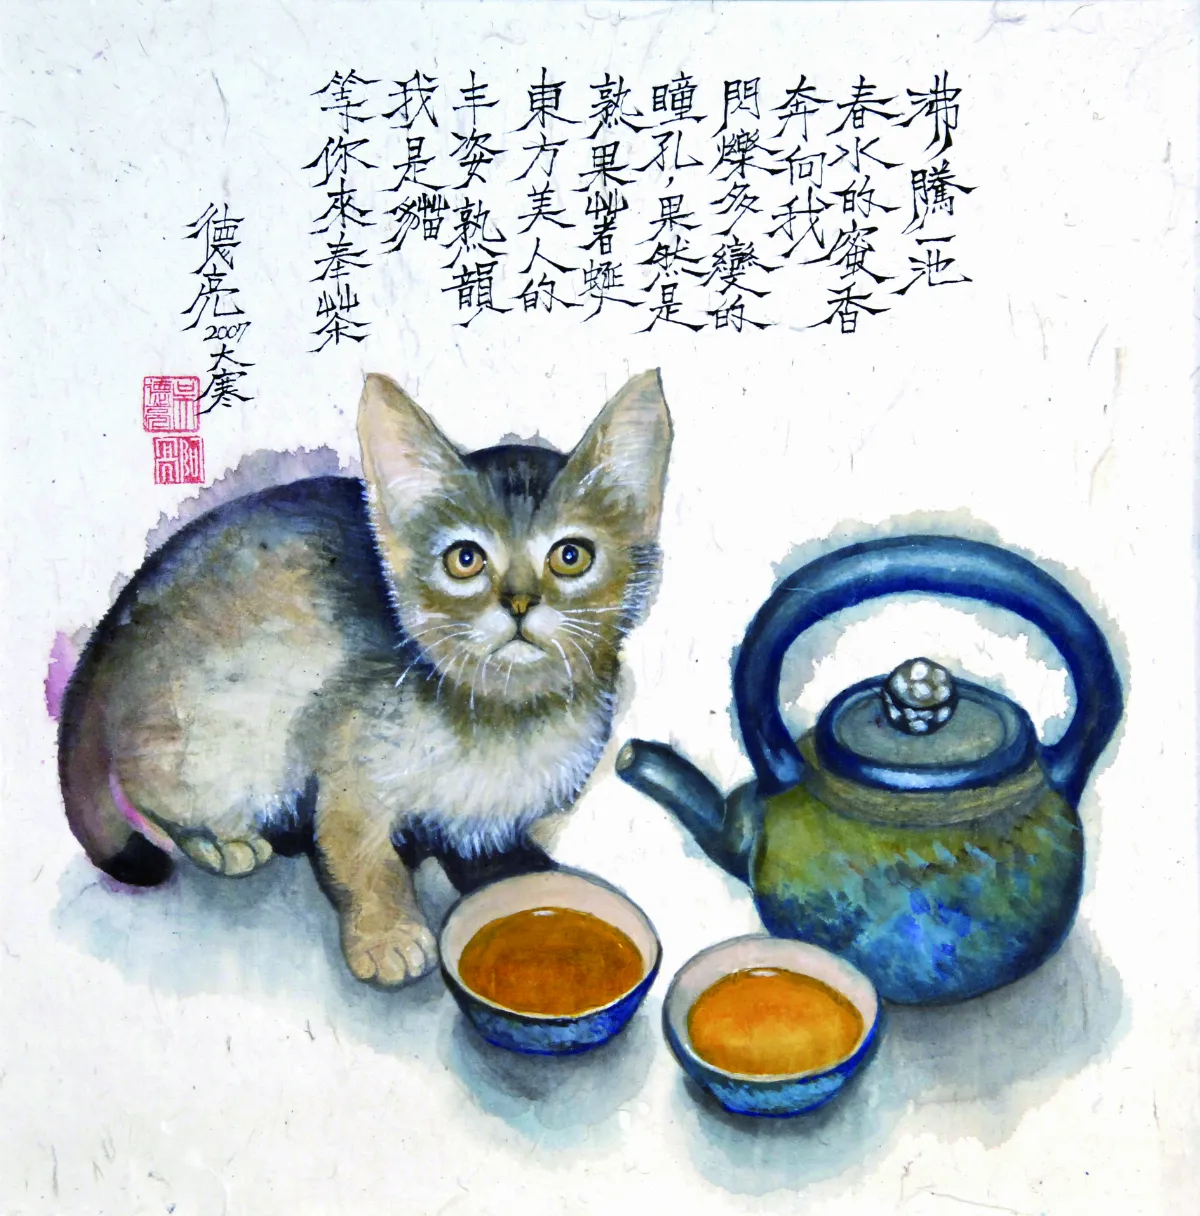 沸騰一池
春水的蜜香
奔向我
閃爍多變的
瞳孔，果然是
熟果著蜒
東方美人的
丰姿熟韻
我是貓
等你來奉茶
德亮 2007 大寒
吳德亮
阿亮